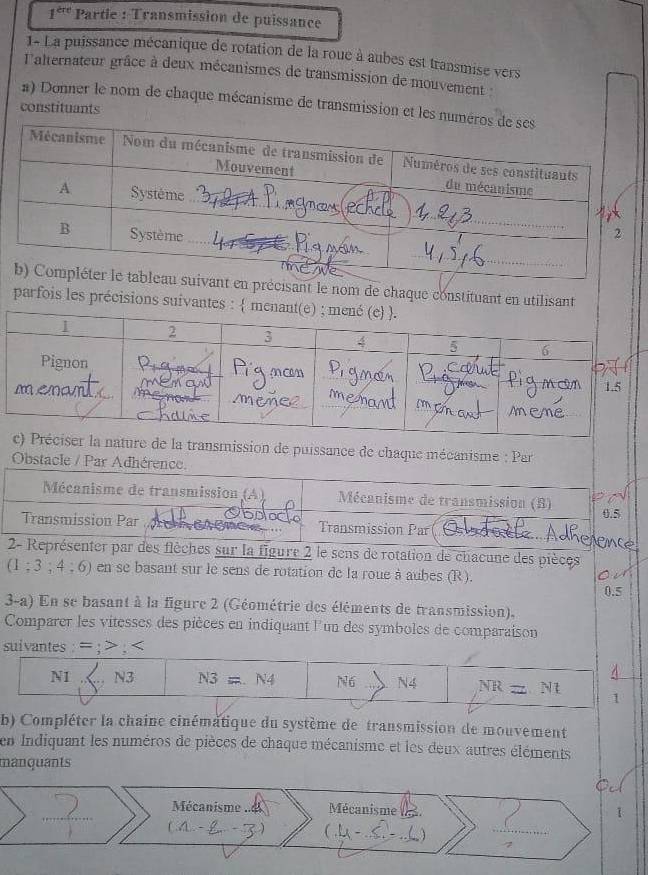 1ère Partie : Transmission de puissance
1- La puissance mécanique de rotation de la roue à aubes est transmise vers
l'alternateur grâce à deux mécanismes de transmission de mouvement :
a) Donner le nom de chaque mécanisme de transmission et les numéros de ses
constituants
Mécanisme Nom du mécanisme de transmission de Mouvement Numéros de ses constituants du mécanisme
A Système Pignons (echele) 1, 2, 3
2
B Système Pignon mene 4, 5, 6
b) Compléter le tableau suivant en précisant le nom de chaque constituant en utilisant
parfois les précisions suivantes : { menant(e) ; mené (e) }.
1 2 3 4 5 6
Pignon menant chaine Pignon menée Pignon menand Pignon mené
1.5
c) Préciser la nature de la transmission de puissance de chaque mécanisme : Par
Obstacle / Par Adhérence.
Mécanisme de transmission (A) Mécanisme de transmission (B)
0.5
Transmission Par Obstacle Transmission Par Adherence
2- Représenter par des flèches sur la figure 2 le sens de rotation de chacune des pièces
(1 ; 3 ; 4 ; 6) en se basant sur le sens de rotation de la roue à aubes (R).
0.5
3-a) En se basant à la figure 2 (Géométrie des éléments de transmission).
Comparer les vitesses des pièces en indiquant l'un des symboles de comparaison
suivantes : = ; > ; <
N1 < N3 N3 = N4 N6 > N4 NR = N1
1
1
b) Compléter la chaine cinématique du système de transmission de mouvement
en Indiquant les numéros de pièces de chaque mécanisme et les deux autres éléments
manquants
? Mécanisme A Mécanisme B ?
1
(1 - 2 - 3) (4 - 5 - 6)